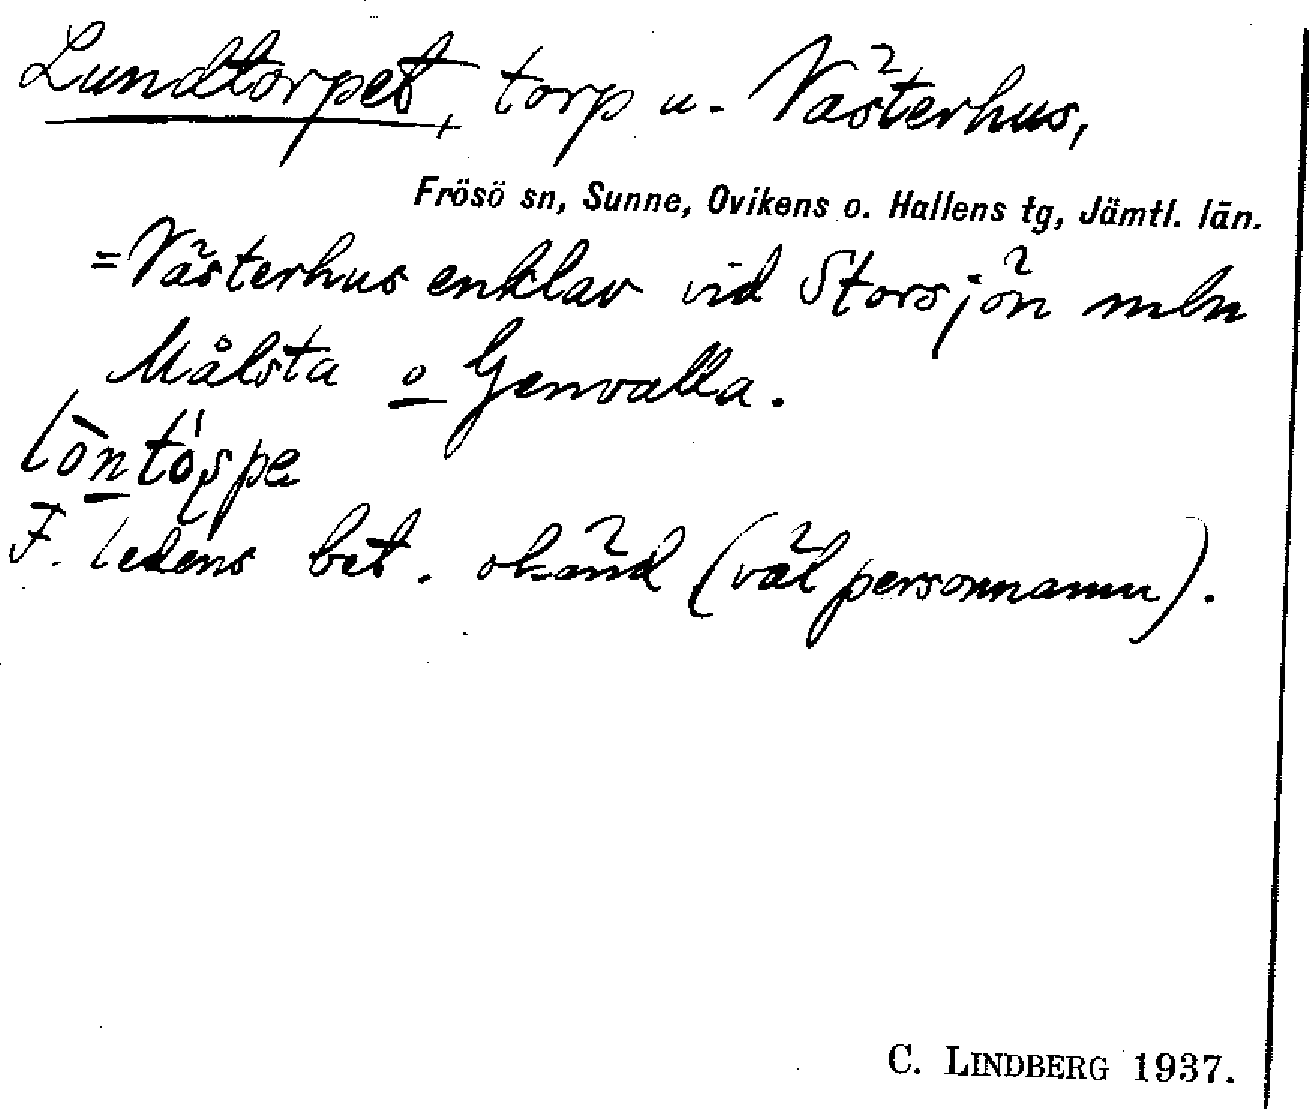 Lundtorpet, torp u. Västerhus,
Frösö sn, Sunne, Ovikens o. Hallens tg, Jämtl. län.
= Västerhus enklav vid Storsjön mln
Målsta o Genvalla.
F. ledens bet. okänd (väl personnamn).
C. LINDBERG 1937.